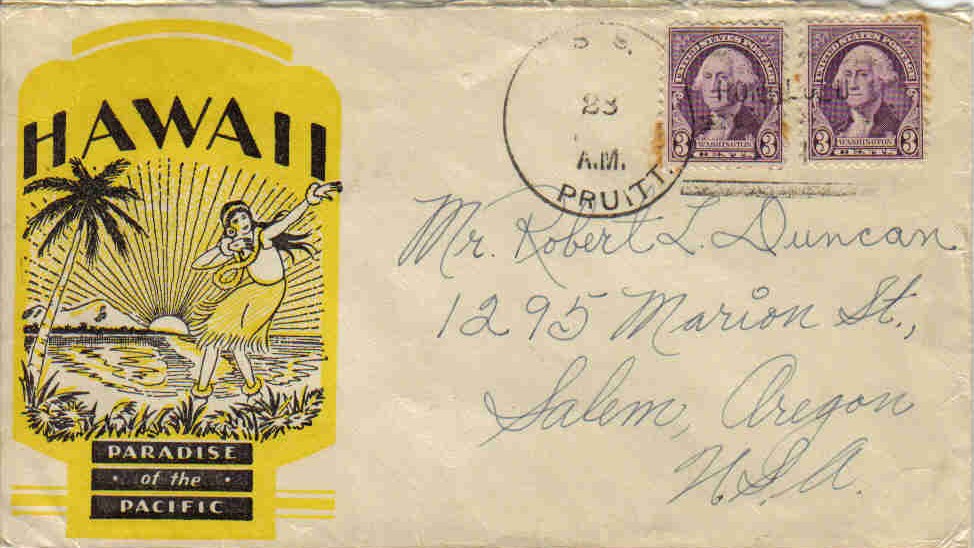 HAWAII
PARADISE
· of the ·
PACIFIC
S S.
23
A.M.
PRUITT.
UNITED STATES POSTAGE
3 WASHINGTON 3
CENTS
UNITED STATES POSTAGE
3 WASHINGTON 3
CENTS
Mr. Robert L. Duncan
1295 Marion St.,
Salem, Oregon
U.S.A.